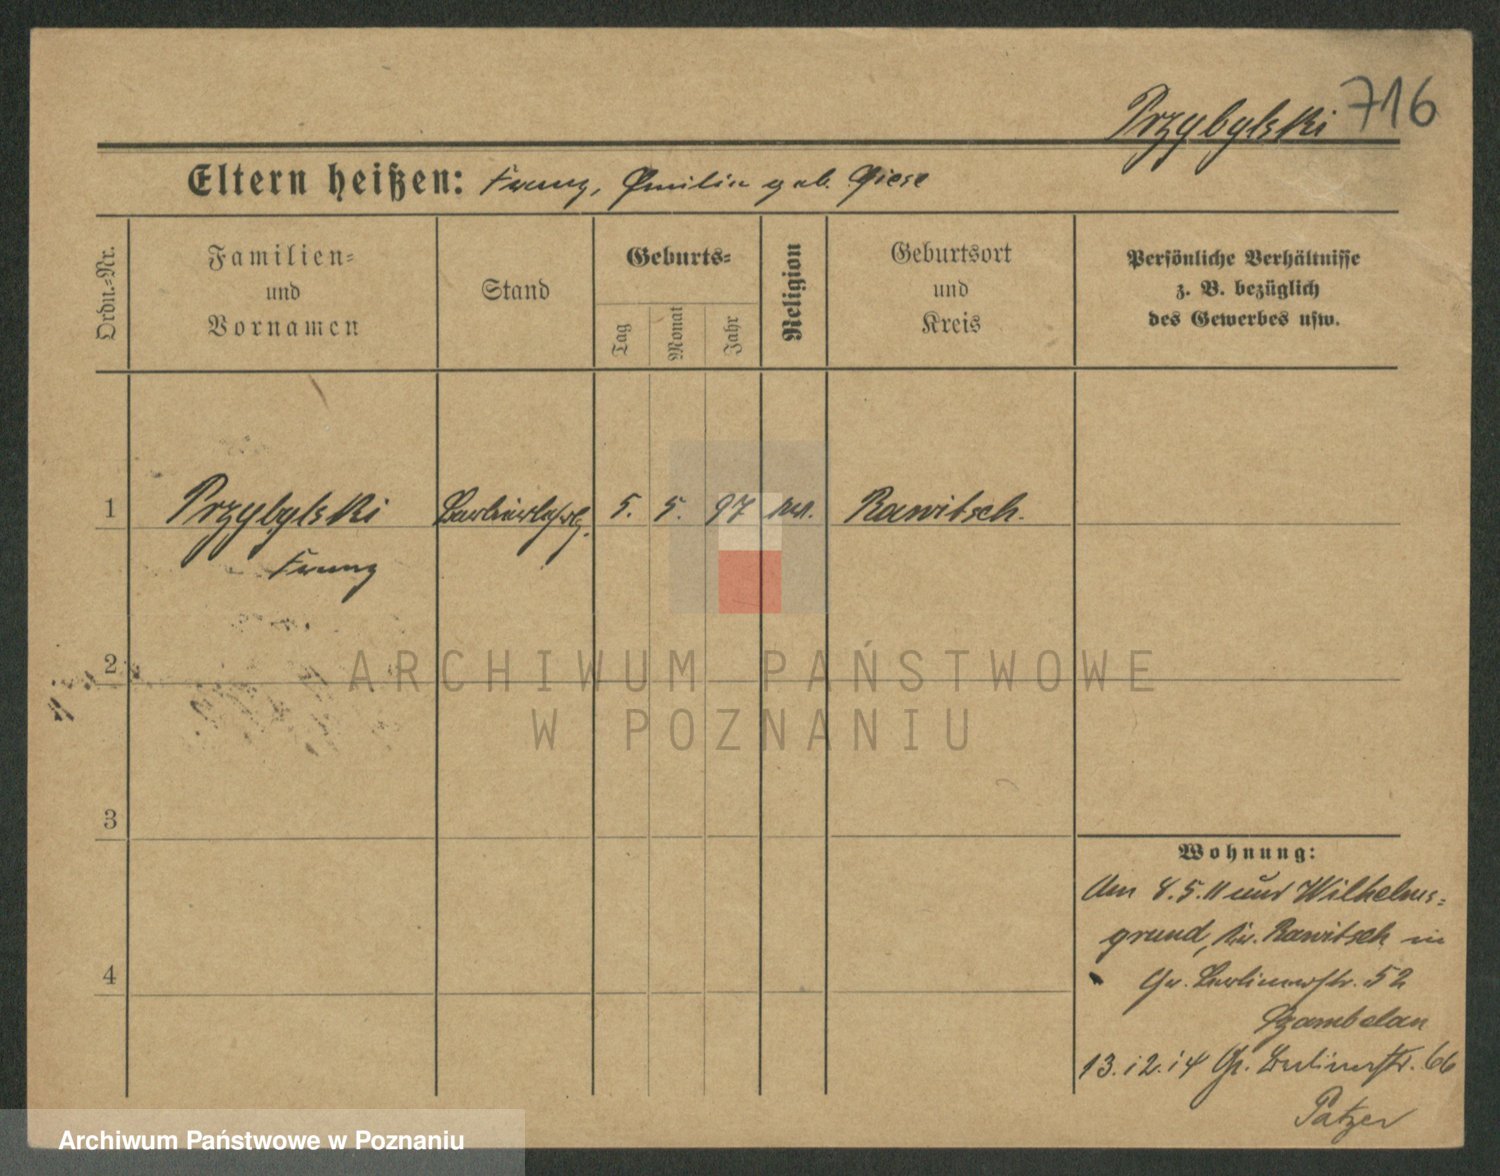 Przybylski 716
Eltern heißen: Franz, Emilie geb. Giese
Ordn.-Nr.
Familien-
und
Vornamen
Stand
Geburts-
Tag
Monat
Jahr
Religion
Geburtsort
und
Kreis
Persönliche Verhältnisse
z. B. bezüglich
des Gewerbes usw.
1 Przybylski Barbierlehrlg. 5. 5. 97 Rawitsch.
Franz
2
ARCHIWUM PAŃSTWOWE
W POZNANIU
3
4
Wohnung:
Am 8.5.11 Wilhelms-
grund, Kr. Rawitsch in
Gr. Berlinerstr. 52
Szambelan
13.12.14 Gr. Berlinerstr. 66
Patzer
Archiwum Państwowe w Poznaniu